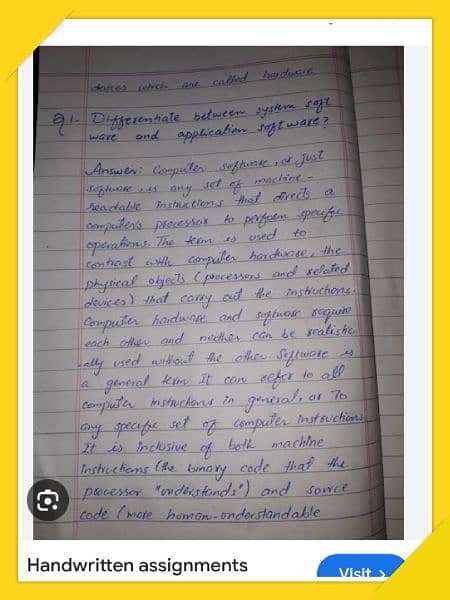 devices which are called hardware
Q1- Differentiate between system soft
ware and application software?
Answer: Computer software, or just
software, is any set of machine-
readable instructions that directs a
computer's processor to perform specific
operations. The term is used to
contrast with computer hardware, the
physical objects (processors and related
devices) that carry out the instructions.
Computer hardware and software require
each other and neither can be realistic
-ally used without the other. Software is
a general term. It can refer to all
computer instructions in general, or To
any specific set of computer instructions
It is inclusive of both machine
instructions (the binary code that the
processor "understands") and source
code (more human-understandable
Handwritten assignments
Visit >